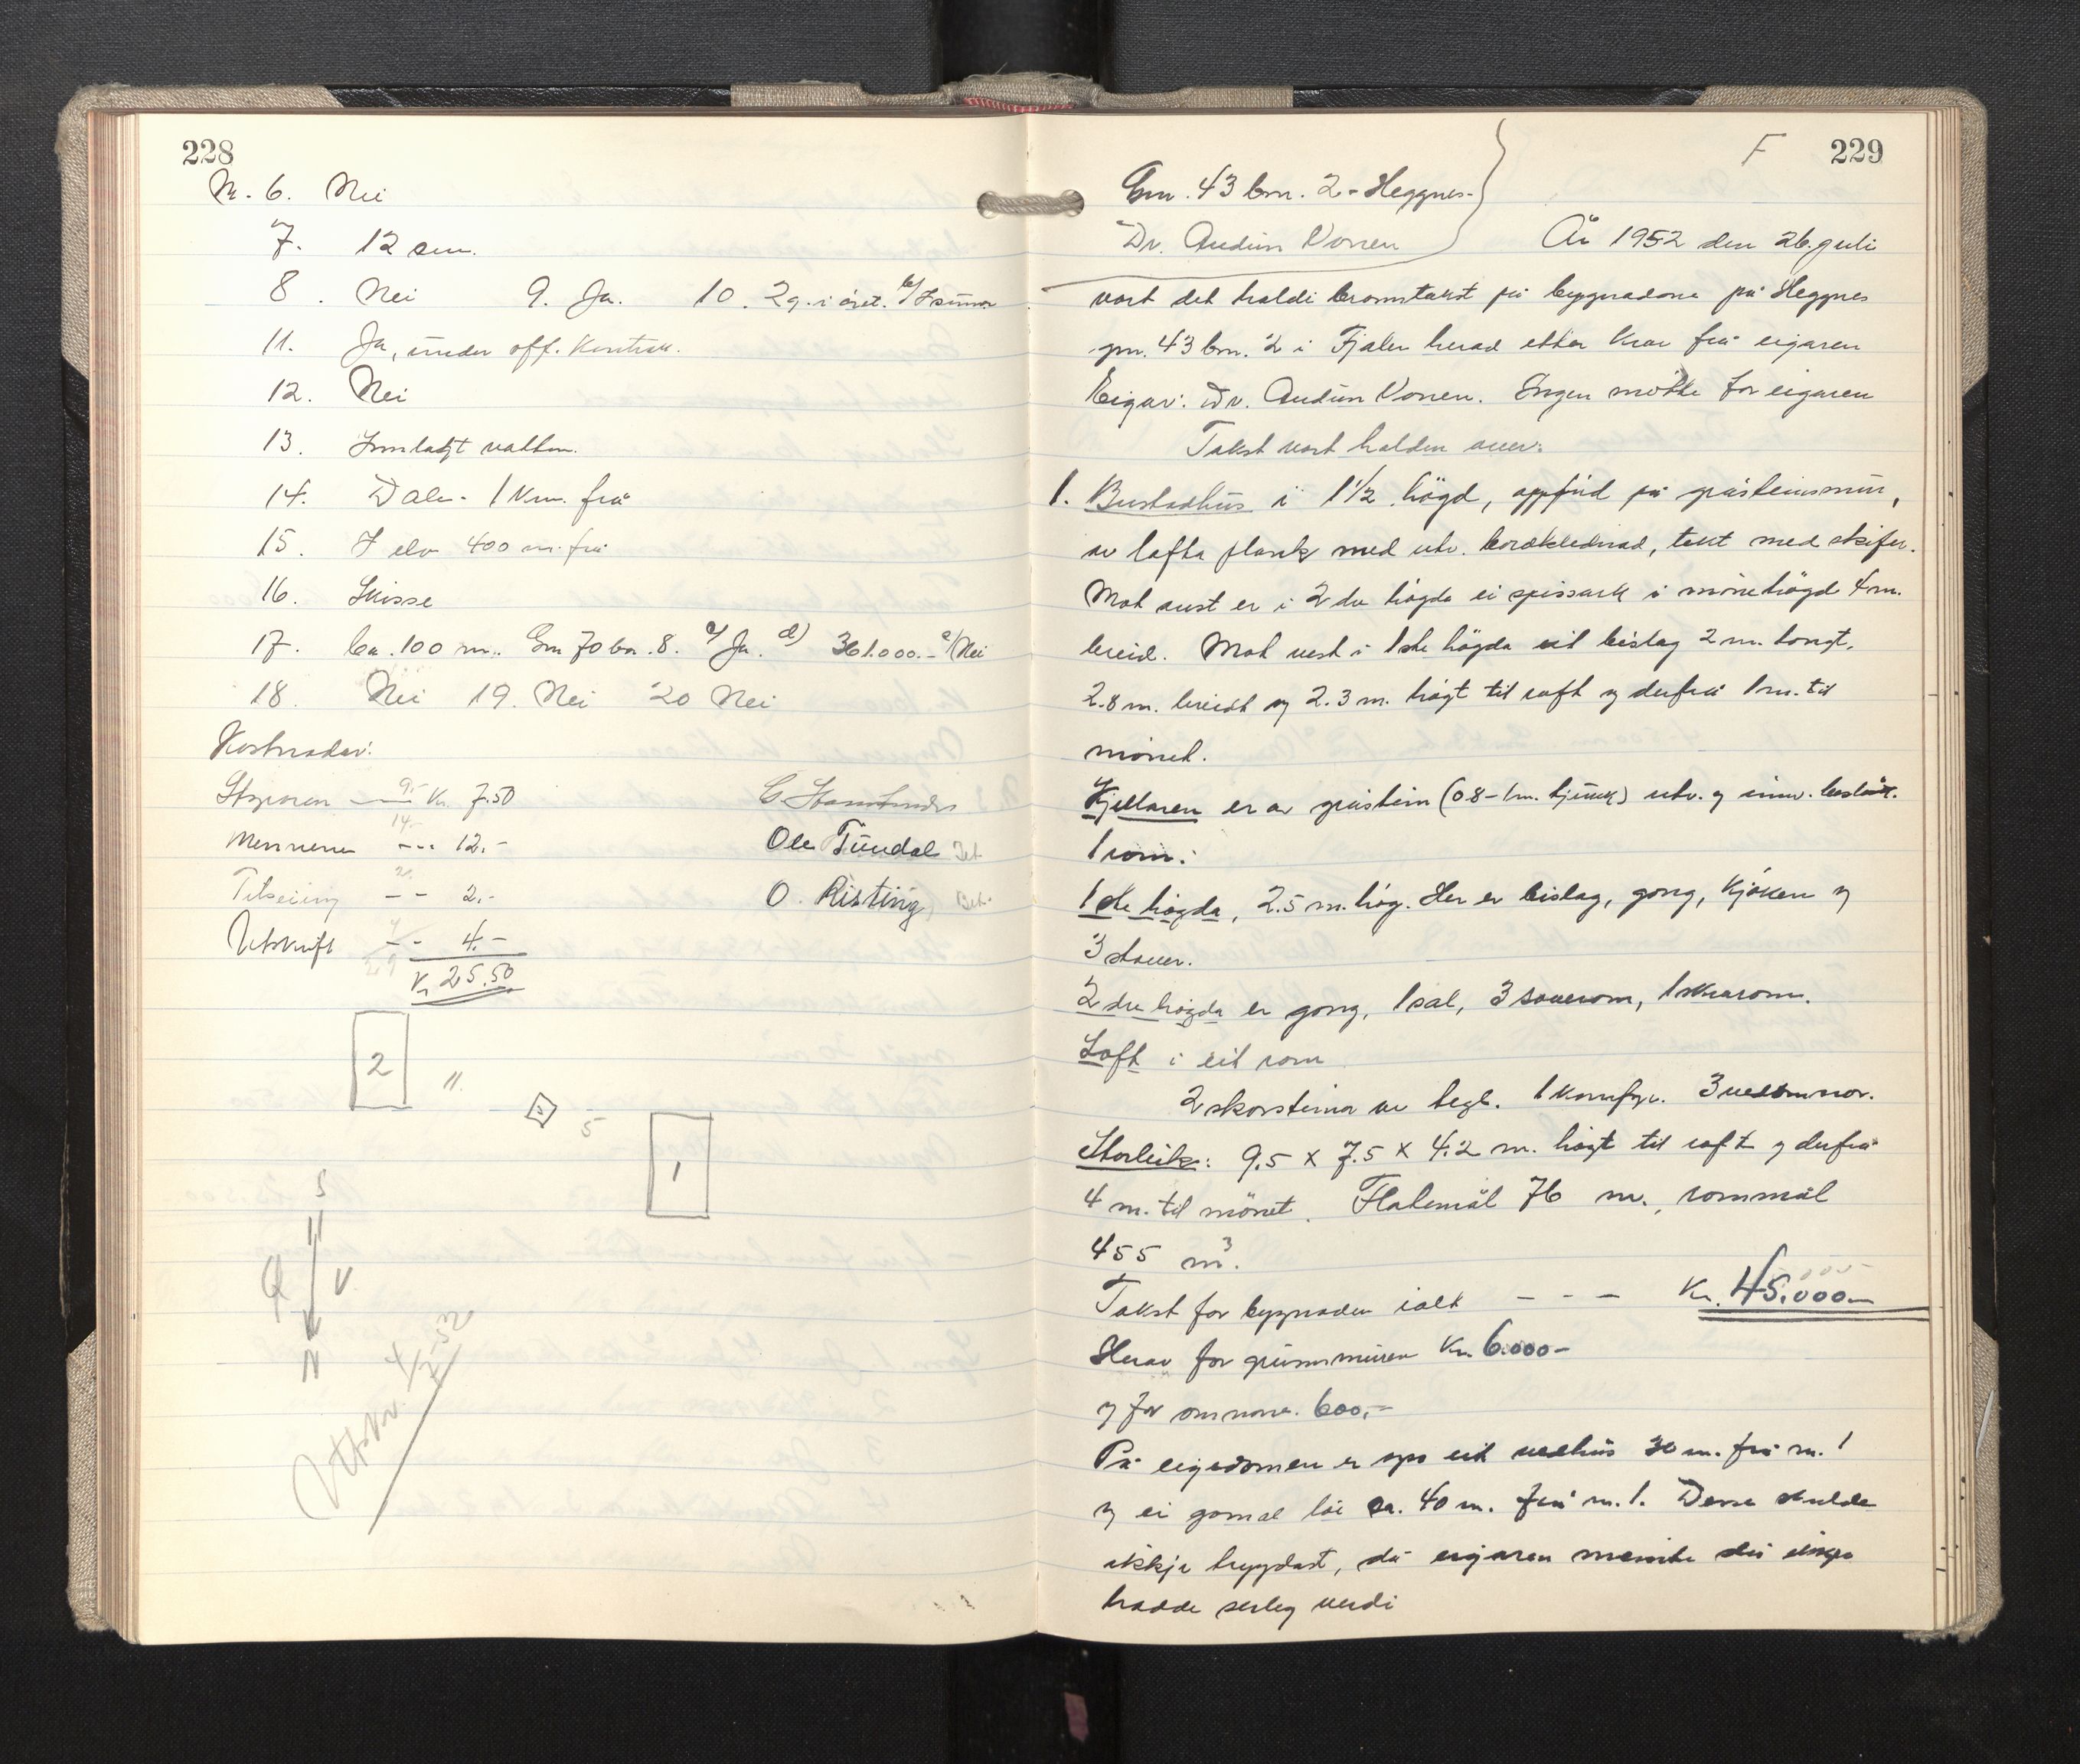 228
Nr. 6. Nei
7. 12 cm.
8. Nei 9. Ja. 10. 2 g. i året. b/
11. Ja, under off. kontroll.
12. Nei
13. Innlagt vatten.
14. Dale - 1 km. frå
15. I elv 400 m. frå
16. Skisse
17. ca. 100 m. Gm 70 bn. 8. c/ Ja. d) 361.000.- e/ Nei
18. Nei 19. Nei 20 Nei
Kostnader:
Styraren — Kr. 7.50
9.-
Mennene --- 12.-
14.-
Ole Tundal
Tilseiing -- 2.-
O. Risting
Utskrift -- 4.-
Kr 25.50
2
11.
5
1
S
V
N
Utskr. 4/7-52
F 229
Gm. 43 bm. 2 - Heggnes-
Dr. Audun Vonen År 1952 den 26. juli
vart det haldi branntakst på bygnadane på Heggnes
gm. 43 bm. 2 i Fjaler herad etter krav frå eigaren
Eigar: Dr. Audun Vonen. Ingen møtte for eigaren
Takst vart halden over:
1. Bustadhus i 1½ högd, oppförd på gråsteinsmur,
av lafta plank med utv. bordklednad, tekt med skifer.
Mot aust er i 2 dre högda ei spissark i mönehögd 4 m.
breid. Mot vest i 1ste högda eit bislag 2 m. langt,
2.8 m. breidt og 2.3 m. högt til raft og derfrå 1 m. til
mönet.
Kjellaren er av gråstein (0.8-1 m. tjukk) utv. og innv.
1 rom:
1ste högda, 2.5 m. hög. Her er bislag, gong, kjöken og
3 stover.
2 dre högda er gong, 1 sal, 3 soverom, 1 skrarom.
Loft i eit rom
2 skorsteinar av tegl. 1 komfyr. 3 vedomnar.
Storleik: 9.5 x 7.5 x 4.2 m. högt til raft og derfrå
4 m. til mönet. Flatemål 76 m., rommål
455 m³.
Takst for bygnaden ialt --- Kr. 45.000.-
Herav for grunnmuren Kr. 6.000-
og for omnane. 600,-
På eigedomen er ogso eit vedhus 30 m. frå nr. 1
og ei gamal löe ca. 40 m. frå nr. 1. Desse skulde
ikkje trygdast, då eigaren meinte dei ikkje
hadde serleg verdi